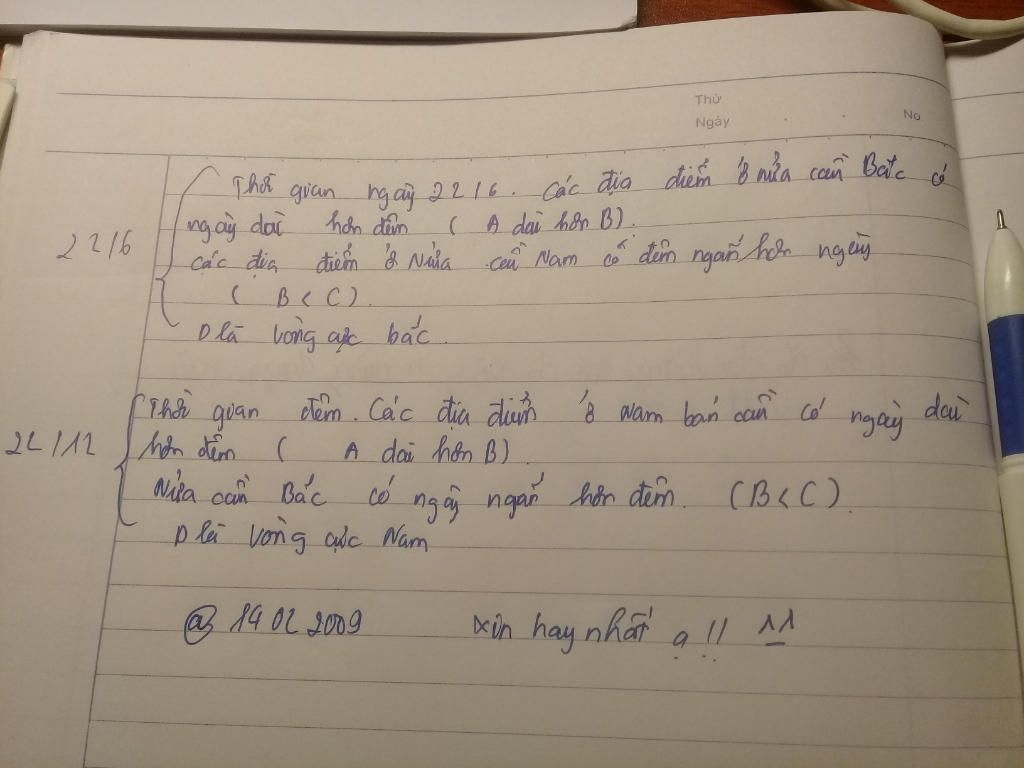 Thứ
Ngày
No
22/6
Thời gian ngày 22/6. Các địa điểm ở nửa cầu Bắc có
ngày dài hơn đêm ( A dài hơn B).
Các địa điểm ở Nửa cầu Nam có đêm ngắn hơn ngày
( B < C).
D là vòng cực bắc.
22/12
Thời gian đêm. Các địa điểm ở Nam bán cầu có ngày dài
hơn đêm ( A dài hơn B)
Nửa cầu Bắc có ngày ngắn hơn đêm. (B < C).
D là vòng cực Nam
@ 14022009 xin hay nhất ạ !! ^^